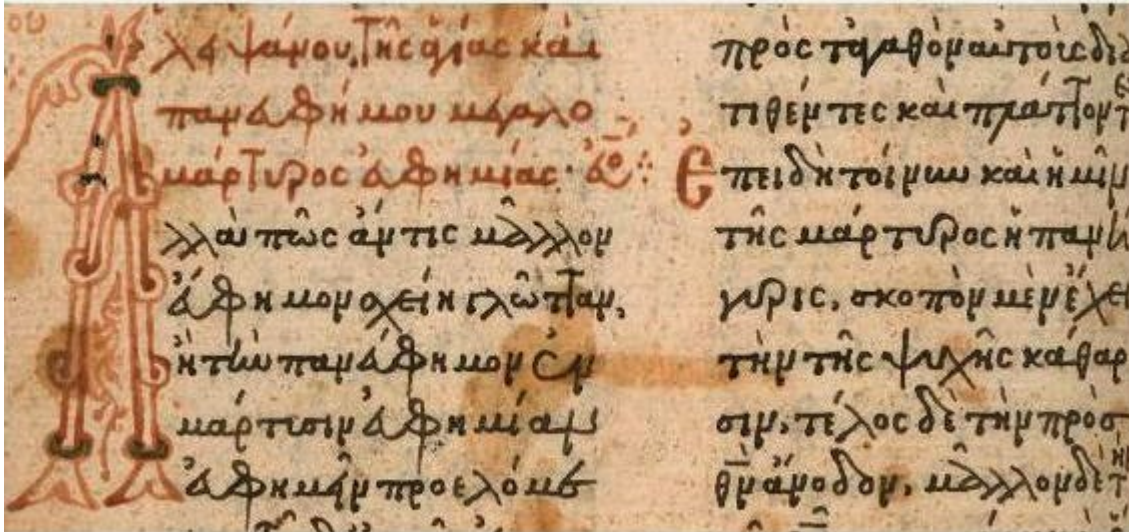 λειψάνου, τῆς ἁγίας καὶ
πανευφήμου μεγαλο
μάρτυρος εὐφημίας·
Ἀλλὰ πῶς ἄν τις μᾶλλον
εὔφημον σχείη γλῶτταν,
ἢ τὴν πανεύφημον ἐν
μάρτυσιν εὐφημίαν
εὐφημεῖν προελόμε
πρὸς τἀγαθὸν αὐτοῖς
τιθέντες καὶ
Ἐπειδὴ τοίνυν καὶ ἡμῖν
τῆς μάρτυρος ἡ πανή
γυρις, σκοπὸν μὲν ἔχει
τὴν τῆς ψυχῆς κάθαρ
σιν, τέλος δὲ τὴν πρὸς
θν ἄνοδον, μᾶλλον δὲ